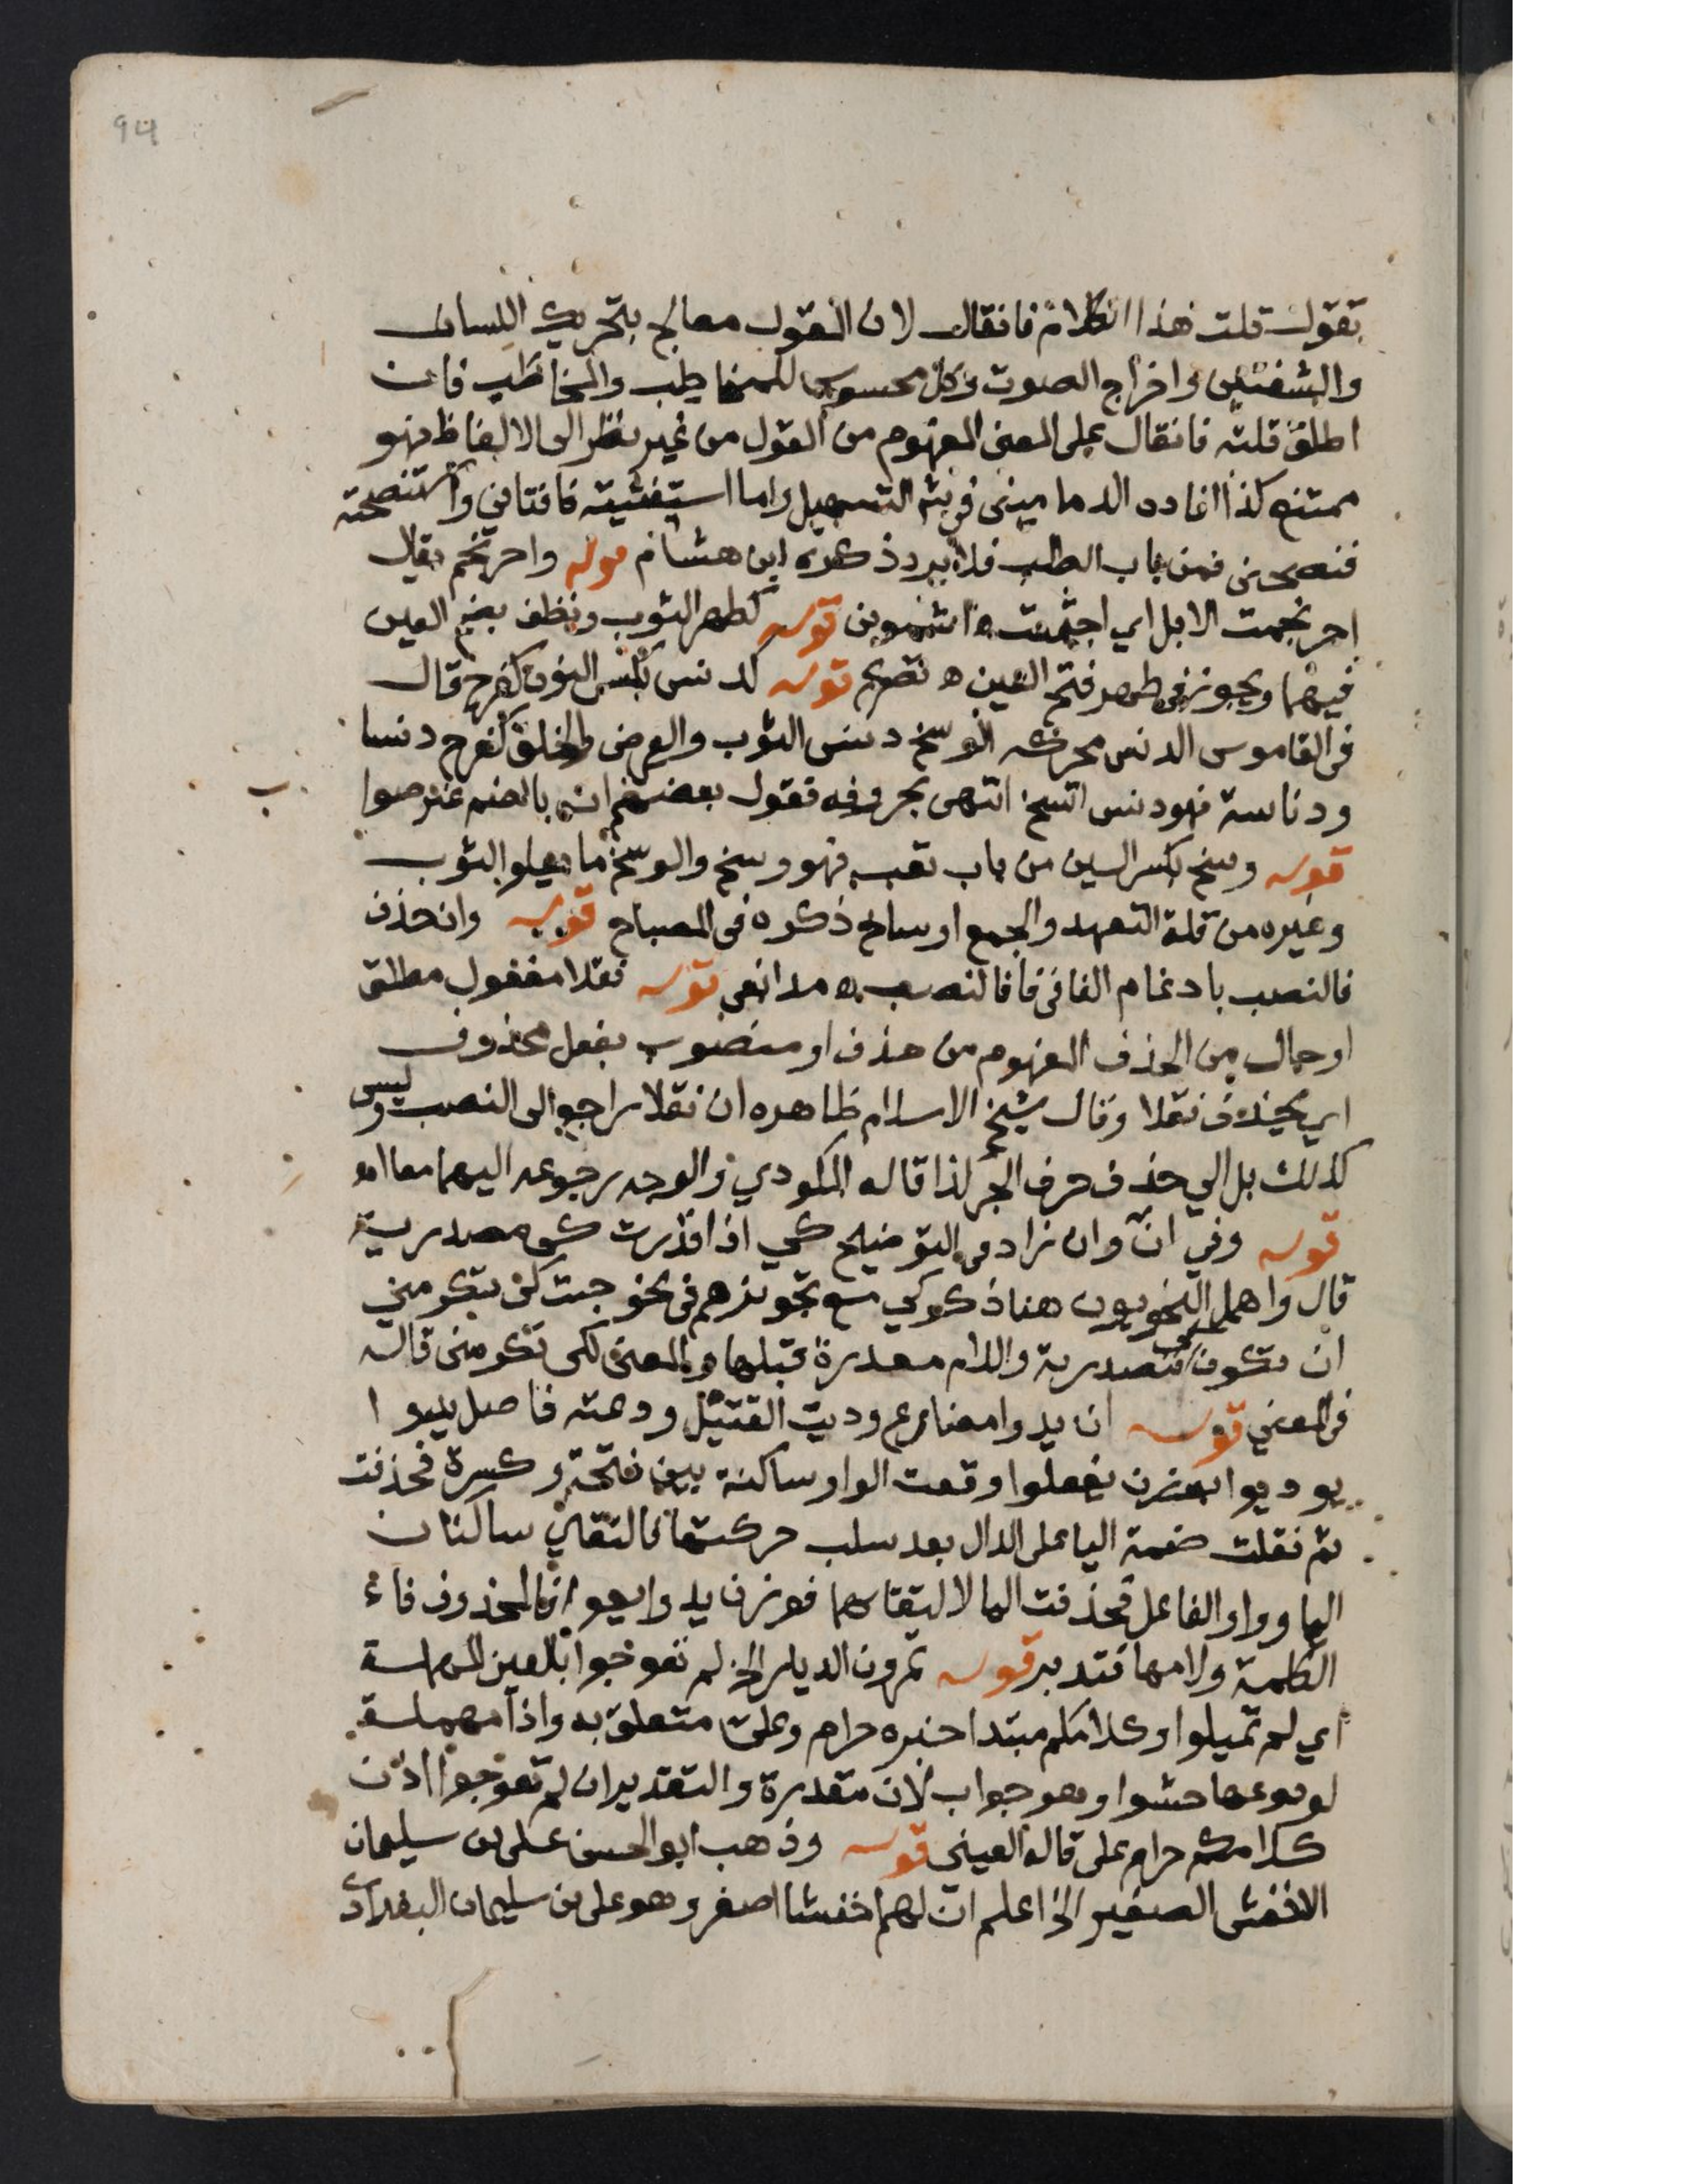 94
تقول قلت هذا الكلام فانقال لان القول معالج بتحريك اللسان
والشفتين واخراج الصوت وكل محسوس للمخاطِب والمخاطَب فان
اطلق قلته فانقال على المعنى المفهوم من القول من غير نظر الى الالفاظ فهو
ممتنع كذا افاده الدماميني في شرح التسهيل واما استفتيته فافتاني واستنصحته
فنصحني فمن باب الطلب فلا يرد ذكره ابن هشام قوله واحرنجم يقال
احرنجمت الابل اي اجتمعت ه اشموني قوله كطهر الثوب ونظف بضم العين
فيهما ويجوز في طهر فتح العين ه تصريح قوله كدنس بكسر النون كفرح قال
في القاموس الدنس محركه الوسخ دنس الثوب والعرض والخلق كفرح دنسا
ودناسة فهو دنس اتسخ انتهى بحروفه فقول بعضهم انه بالضم غير صوا
ب
قوله وسخ بكسر السين من باب تعب فهو وسخ والوسخ ما يعلو الثوب
وغيره من قلة التعهد والجمع اوساخ ذكره في المصباح قوله وان حذف
فالنصب بادغام الفا في فا فالنصب ه مدابغي قوله نقلا مفعول مطلق
او حال من الحذف المفهوم من حذف او منصوب بفعل محذوف
اي بحذف نقلا وقال شيخ الاسلام ظاهره ان نقلا راجع الى النصب وليس
كذلك بل الي حذف حرف الجر لذا قاله المكودي والوجه رجوعه اليهما معا اه
قوله وفي انّ وان زاد في التوضيح كي اذا قدرت كي مصدرية
قال واهمل النحويون هنا ذكر كي مع تجويزهم في نحو جئت كي تكرمني
ان تكون كي مصدرية واللام مقدرة قبلها والمعنى لكي تكرمني قاله
في المغني قوله ان يدوا مضارع وديت القتيل ودعته فاصل يديوا
يوديوا بوزن يفعلوا وقعت الواو ساكنة بين فتحة وكسرة فحذفت
ثم نقلت ضمة اليا على الدال بعد سلب حركتها فالتقاي ساكنان
اليا وواو الفاعل فحذفت اليا لالتقايهما فوزن يدوا يعوا فالمحذوف فاء
الكلمة ولامها فتدبر قوله تمرون الديار الخ لم تعوجوا بالعين المهملة
اي لم تميلوا وكلامكم مبتدا خبره حرام وعلي متعلق به واذا مهملة
لوقوعها حشوا وهو جواب لان مقدرة والتقدير ان لم تعوجوا اذن
كلامكم حرام على قاله العيني قوله وذهب ابو الحسن علي بن سليمان
الاخفش الصغير الخ اعلم ان لهم اخفشا اصغر وهو علي بن سليمان البغدادي